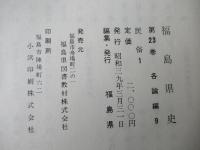 福島県史
第23巻 各論編9
民俗1
定価 二、〇〇〇円
発行 昭和三九年三月三一日
編集・発行 福島県
発売元
福島市舟場町二の一
福島県図書教材株式会社
印刷所
福島市陣場町六二
小浜印刷株式会社